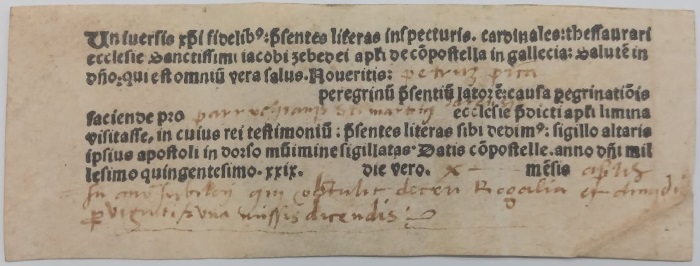 Uniuersis xp̄i fidelibꝰ: p̄sentes literas inspecturis. cardinales: thessaurari
ecclesie Sanctissimi iacobi zebedei apl̄i de cōpostella in gallecia: Salutē in
dn̄o, qui est omniū vera salus. Noueritis: petrus
peregrinū p̄sentiū latorē: causa peregrinatiōis
faciende pro ecclesie p̄dicti apl̄i limina
visitasse, in cuius rei testimoniū: p̄sentes literas sibi dedimꝰ: sigillo altaris
ipsius apostoli in dorso mūimine sigillatas. Datis cōpostelle. anno dn̄i mil
lesimo quingentesimo. xxix. die vero. x mēsis aprilis
In anno Jubilei qui obtulit decem Regalia
dicendis